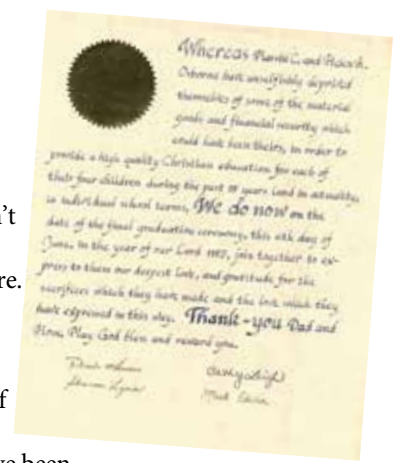 Whereas
Osborne have unselfishly deprived
themselves of some of the material
goods and financial security which
could have been theirs, in order to
provide a high quality Christian education for each of
their four children during the past 19 years (and in actuality,
individual school terms, We do now on the
date of the final graduation ceremony, this 4th day of
June, in the year of our Lord join together to ex-
press to them our deepest love, and gratitude for the
sacrifices which they have made and the love which they
have expressed in this way. Thank-you Dad and
Mom, May God bless and reward you.
Cathy Leigh
Sharon Lynne
't
re.
f
ve been